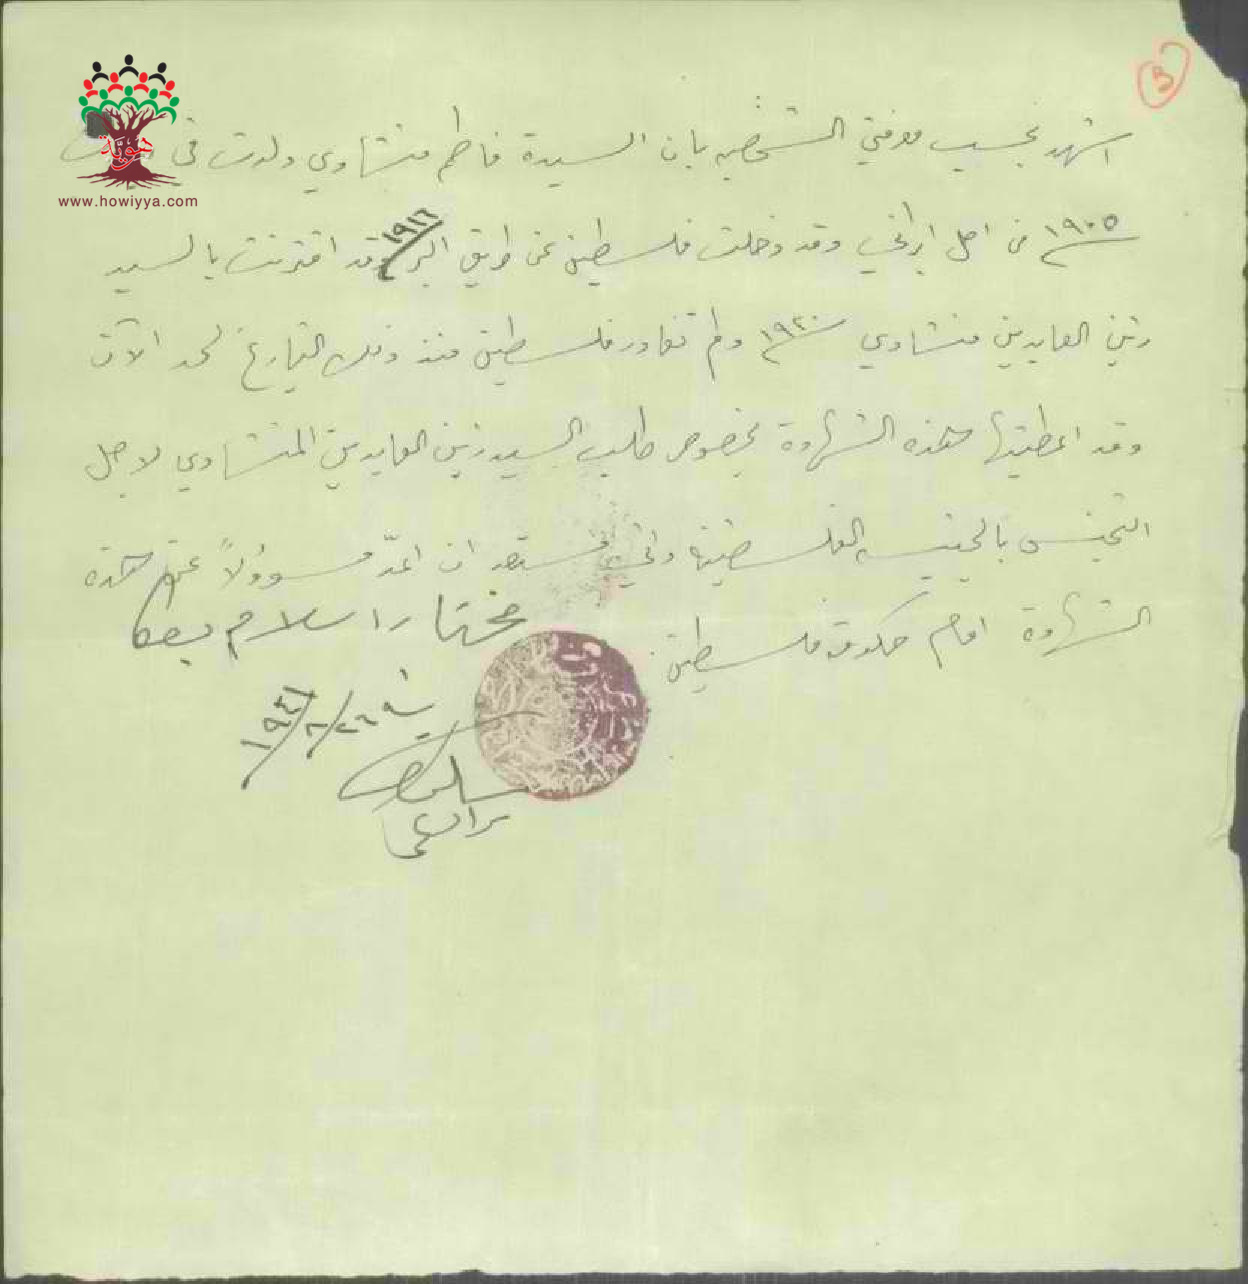 3
هوية
www.howiyya.com
اشهد بحسب معرفتي الشخصيه بان السيدة فاطمه منشاوي ولدت في
١٩٠٥ من اصل ايراني وقد دخلت فلسطين عن طريق البر ١٩١٦ وقد اقترنت بالسيد
زين العابدين منشاوي ١٩٢٠ ولم تغادر فلسطين منذ ذلك التاريخ لحد الآن
وقد اعطيتها هذه الشهادة بخصوص طلب السيد زين العابدين المنشاوي لاجل
التجنس بالجنسيه الفلسطينية وانني مستعد ان اعدّ مسؤولاً عن هذه
الشهادة امام حكومة فلسطين
مختار اسلام بعكا